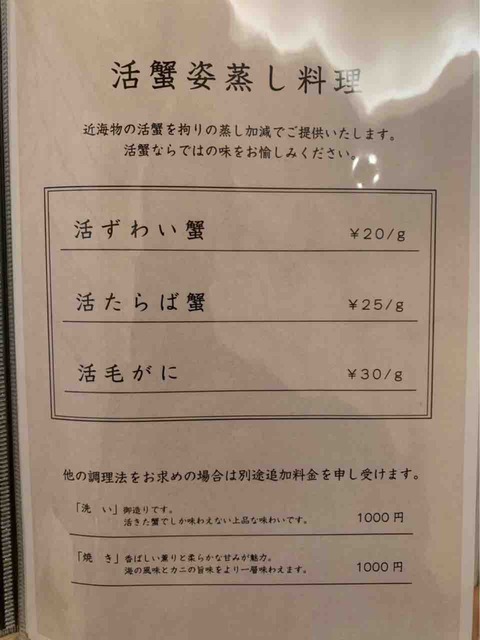 活蟹姿蒸し料理
近海物の活蟹を拘りの蒸し加減でご提供いたします。
活蟹ならではの味をお愉しみください。
活ずわい蟹 ¥20/g
活たらば蟹 ¥25/g
活毛がに ¥30/g
他の調理法をお求めの場合は別途追加料金を申し受けます。
「洗 い」御造りです。
活きた蟹でしか味わえない上品な味わいです。 1000円
「焼 き」香ばしい薫りと柔らかな甘みが魅力。
海の風味とカニの旨味をより一層味わえます。 1000円